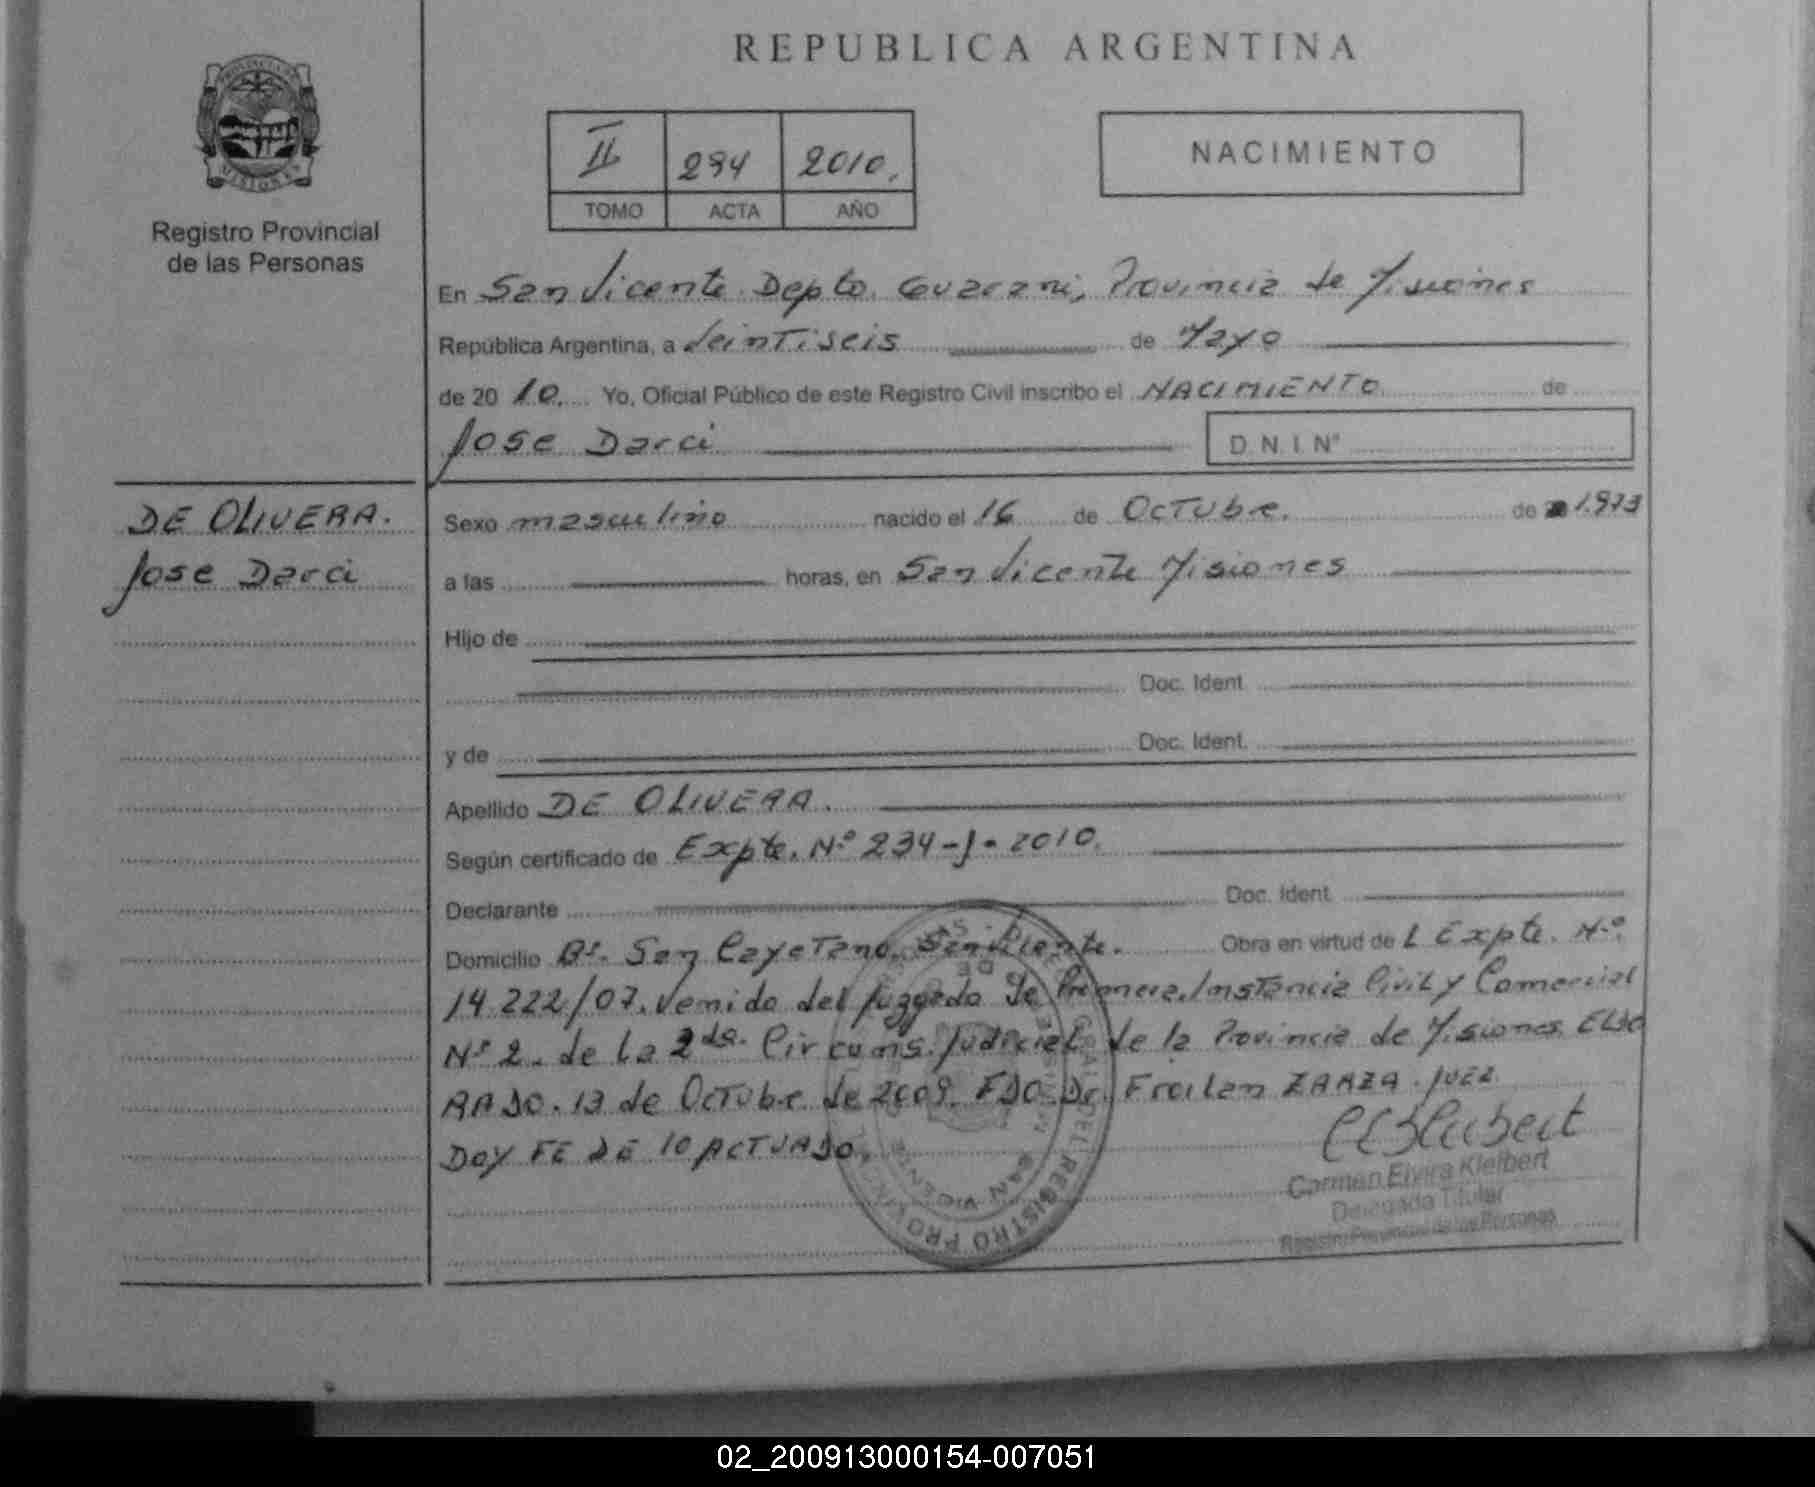 REPUBLICA ARGENTINA
PROVINCIA DE
MISIONES
Registro Provincial
de las Personas
II 294 2010.
TOMO ACTA AÑO
NACIMIENTO
En San Vicente Depto. Guarani, Provincia de Misiones
República Argentina, a Veintiseis de Mayo
de 20 10. Yo, Oficial Público de este Registro Civil inscribo el NACIMIENTO de
Jose Darci D.N.I. Nº
DE OLIVERA.
Jose Darci
Sexo masculino nacido el 16 de OcTubre. de 1.973
a las horas, en San Vicente Misiones
Hijo de
Doc. Ident.
y de Doc. Ident.
Apellido DE OLIVERA.
Según certificado de Expte. Nº 234-J-2010.
Declarante Doc. Ident.
Domicilio Bº. San CayeTano. San Vicente. Obra en virtud de L Expte. Nº
14.222/07. Venido del Juzgado de Primera. InsTancia Civil y Comercial
Nº 2. de la 2da. Circuns. Judicial de la Provincia de Misiones. ELDO
RADO. 13 de OcTubre de 2009. FDO. Dr. Froilan ZARZA. Juez.
DOY FE DE lo ACTUADO.
REGISTRO PROVINCIAL
SAN VICENTE
Carmen Elvira Kleibert
Delegada Titular
Registro Provincial de las Personas
02_200913000154-007051